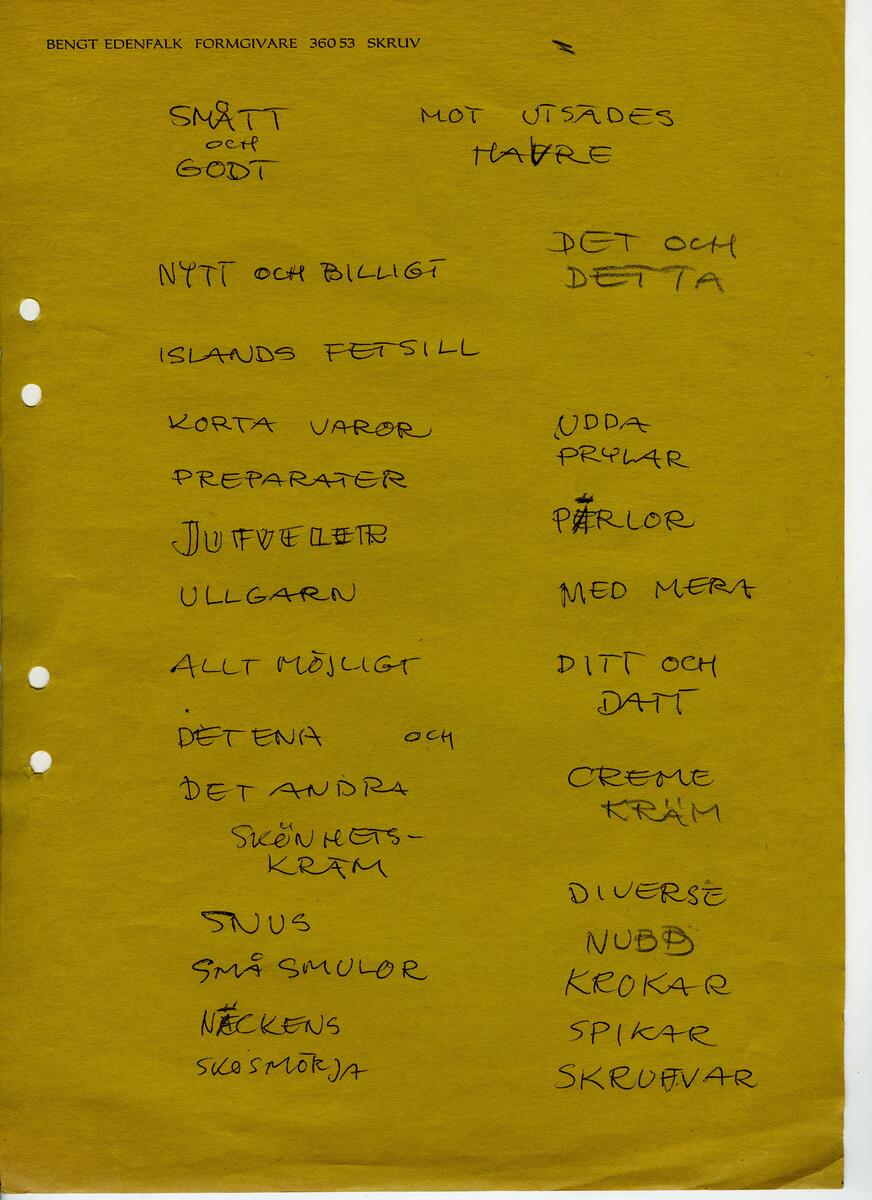 BENGT EDENFALK FORMGIVARE 360 53 SKRUV
SMÅTT
OCH
GODT
NYTT OCH BILLIGT
ISLANDS FETSILL
KORTA VAROR
PREPARATER
JUFVELER
ULLGARN
ALLT MÖJLIGT
DET ENA OCH
DET ANDRA
SKÖNHETS-
KRÄM
SNUS
SMÅ SMULOR
NÄCKENS
SKOSMÖRJA
MOT UTSÄDES
HAVRE
DET OCH
DETTA
UDDA
PRYLAR
PÄRLOR
MED MERA
DITT OCH
DATT
CREME
KRÄM
DIVERSE
NUBB
KROKAR
SPIKAR
SKRUFVAR